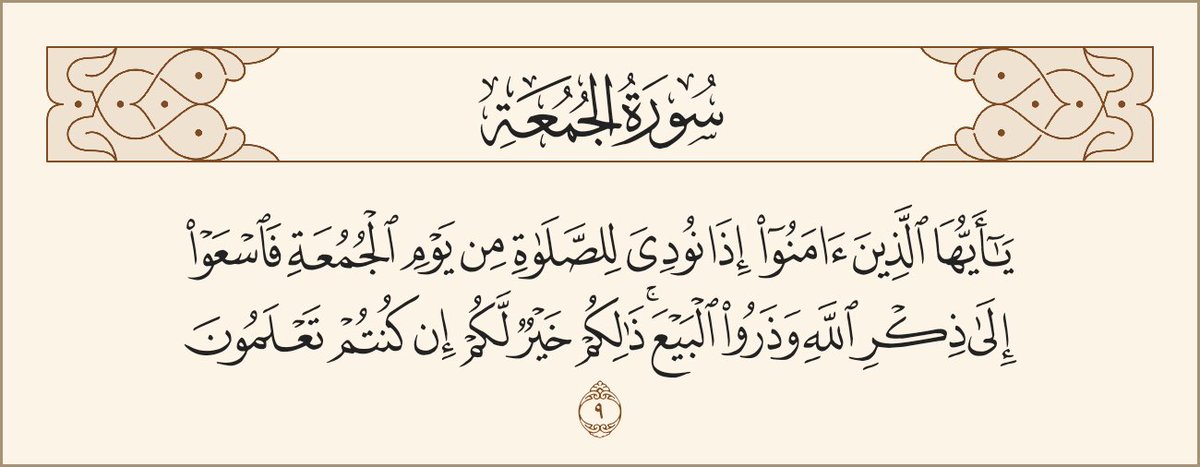 سُورَةُ الجُمُعَةِ
يَٰٓأَيُّهَا ٱلَّذِينَ ءَامَنُوٓا۟ إِذَا نُودِىَ لِلصَّلَوٰةِ مِن يَوْمِ ٱلْجُمُعَةِ فَٱسْعَوْا۟
إِلَىٰ ذِكْرِ ٱللَّهِ وَذَرُوا۟ ٱلْبَيْعَ ۚ ذَٰلِكُمْ خَيْرٌ لَّكُمْ إِن كُنتُمْ تَعْلَمُونَ
٩